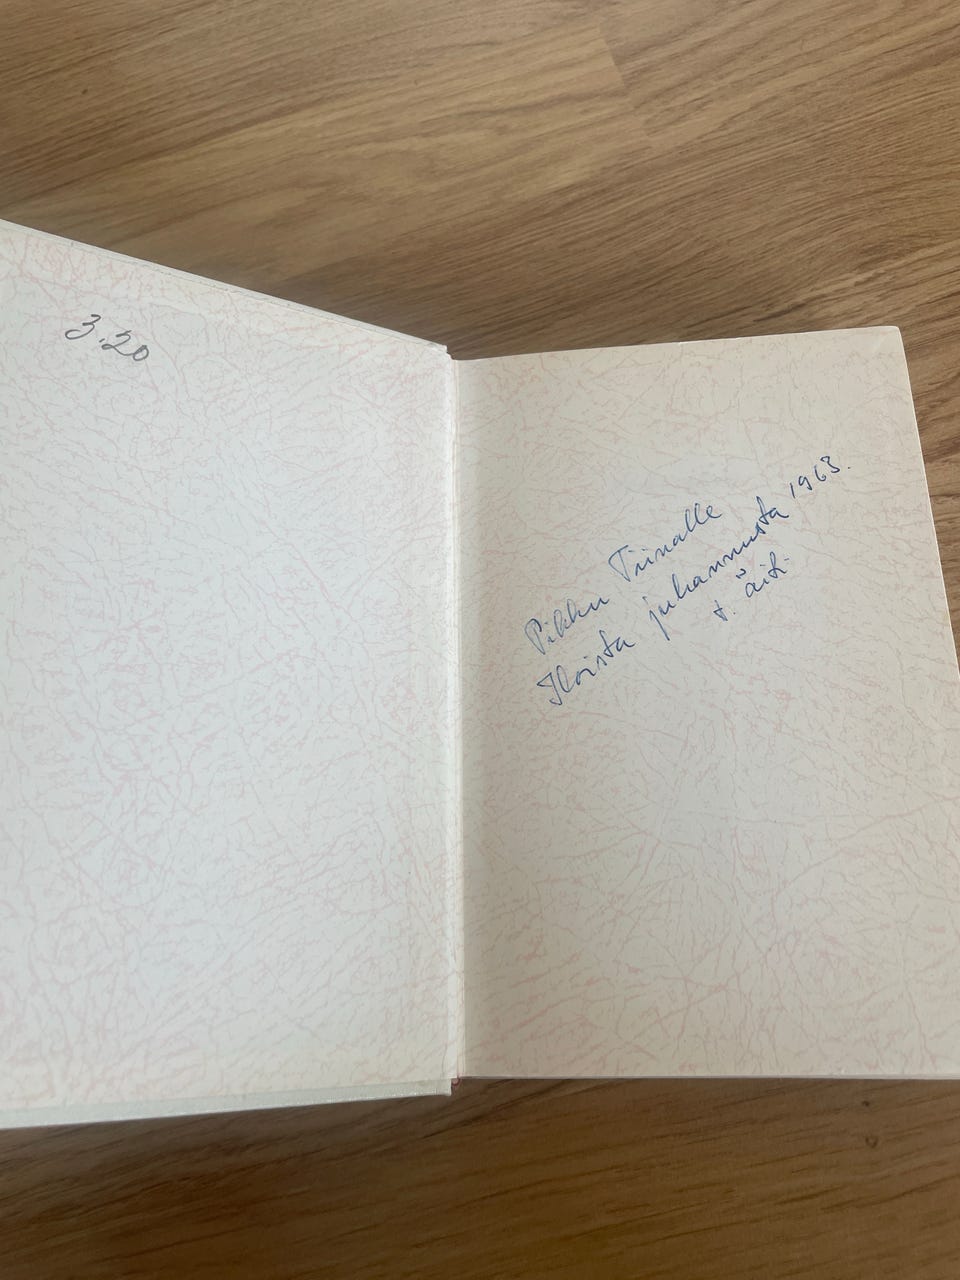 3.20
Pikku Tiinalle
Iloista juhannusta 1963.
t. äiti